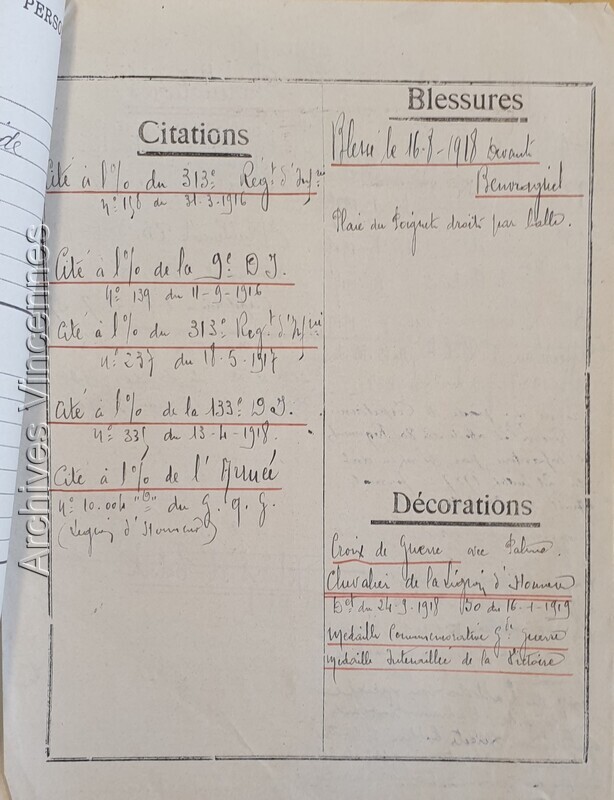 PERSO
de
Citations
Cité à l'% du 313e Regt d'Infie
du 31-3-1916
Cité à l'% de la 9e D I.
No 139 du 11-9-1916
Cité à l'% du 313e Regt d'Infie
No 237 du 18-5-1917
Cité à l'% de la 133e D I.
du 13-4-1918.
Cité à l'% de l'Armée
No 10.004 "D" du G. Q. G.
(Légion d'Honneur)
Blessures
Blessé le 16-8-1918 devant
Beuvraignes
Plaie du Poignet droit par balle.
Décorations
Croix de Guerre avec Palme.
Chevalier de la Légion d'Honneur
Dot du 24-9-1918 JO du 16-1-1919
Medaille Commemorative Gde guerre
Medaille Interalliée de la Victoire
Archives Vincennes